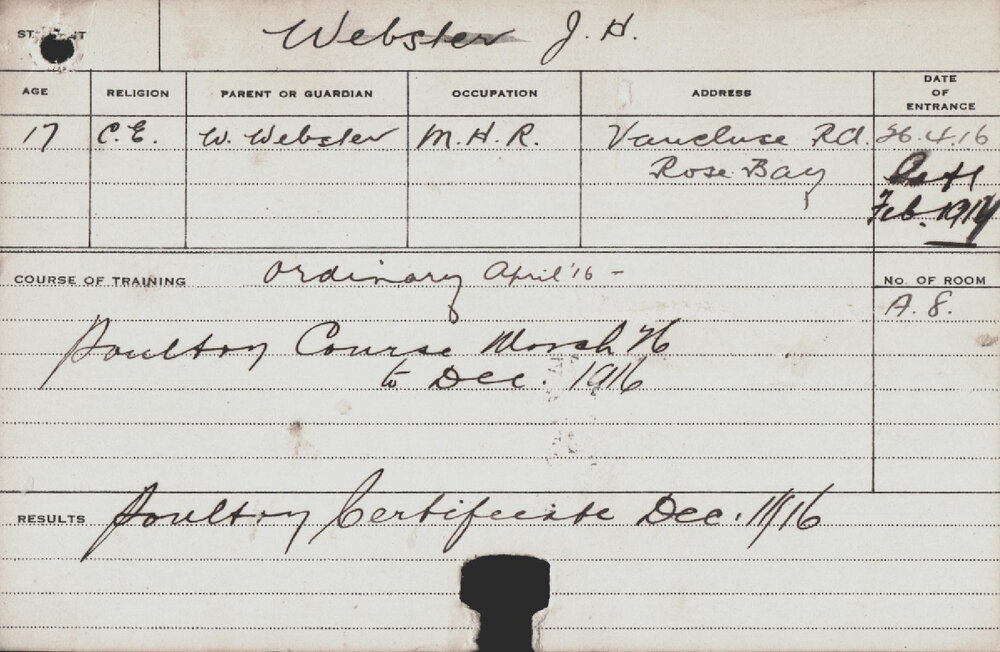 STUDENT Webster J. H.
AGE RELIGION PARENT OR GUARDIAN OCCUPATION ADDRESS DATE OF ENTRANCE
17 C.E. W. Webster M.H.R. Vaucluse Rd. 26.4.16
Rose Bay Left
Feb. 1917
COURSE OF TRAINING Ordinary April '16 - No. OF ROOM
A. 8.
Poultry Course March 16
to Dec. 1916
RESULTS Poultry Certificate Dec. 1916